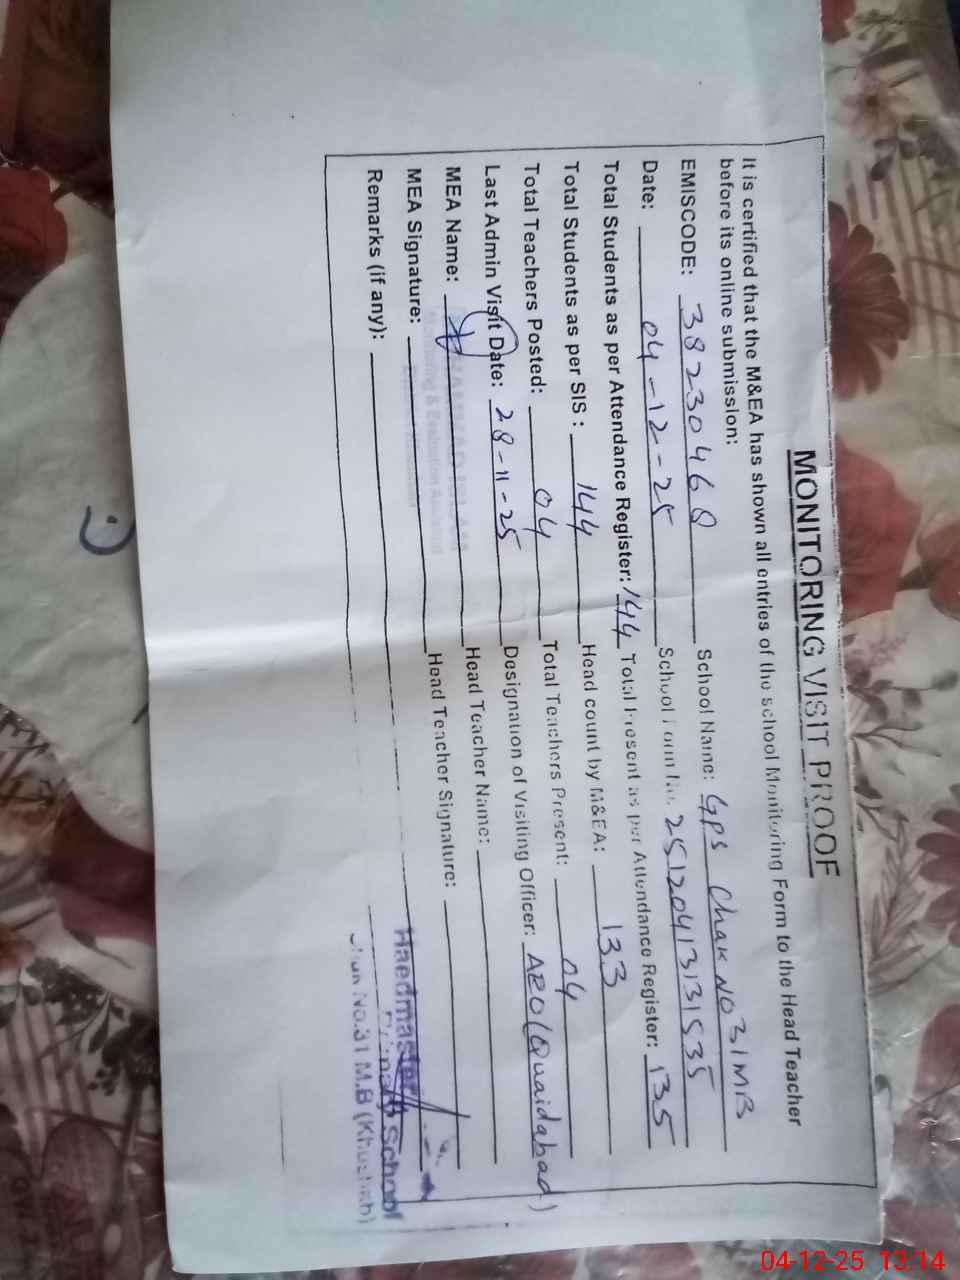 MONITORING VISIT PROOF
It is certified that the M&EA has shown all entries of the school Monitoring Form to the Head Teacher
before its online submission:
EMISCODE: 38230468 School Name: GPS Chak NO 31MB
Date: 04-12-25 School Form No. 25120413131535
Total Students as per Attendance Register: 144 Total Present as per Attendance Register: 135
Total Students as per SIS : 144 Head count by M&EA: 133
Total Teachers Posted: 04 Total Teachers Present: 04
Last Admin Visit Date: 28-11-25 Designation of Visiting Officer: AEO (Quaidabad)
MEA Name: Head Teacher Name:
MEA Signature: Head Teacher Signature:
Monitoring & Evaluation Assistant
Remarks (if any):
Haedmaster
Primary School
Chak No.31 M.B (Khushab)
04-12-25 13:14